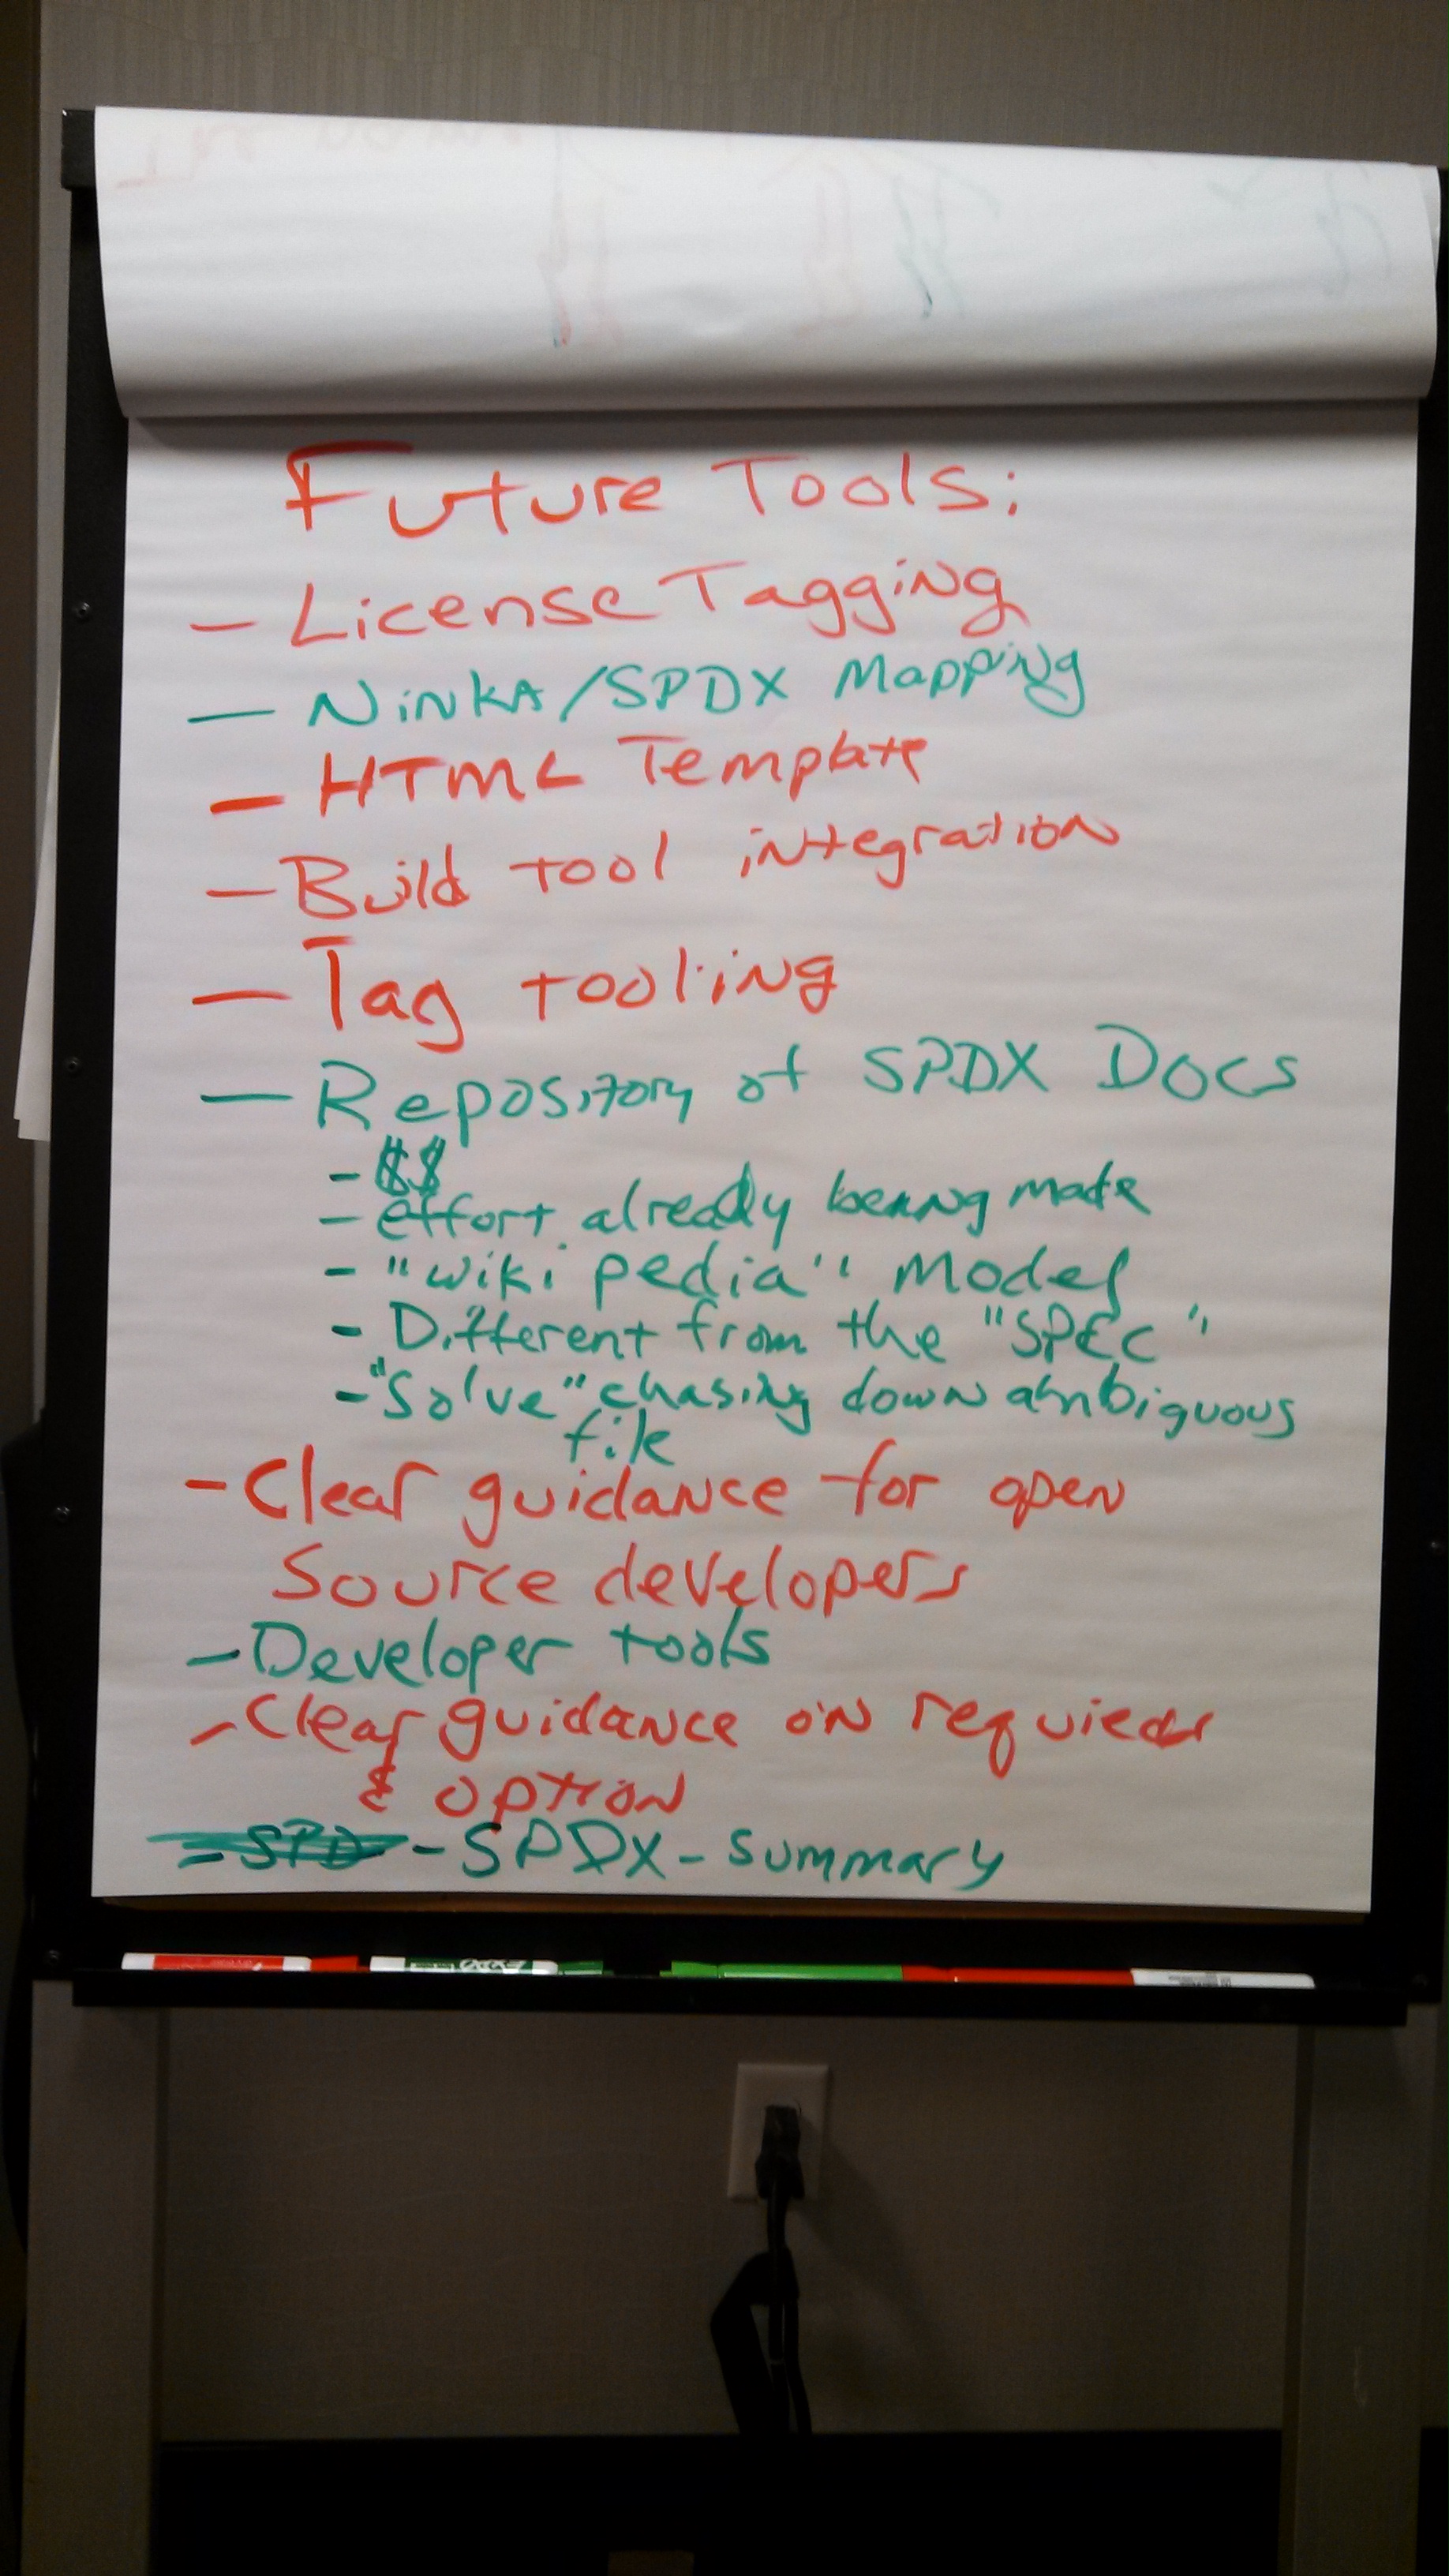 Future Tools:
- License Tagging
- Ninka/SPDX Mapping
- HTML Template
- Build tool integration
- Tag tooling
- Repository of SPDX Docs
- $$
- effort already being made
- "wikipedia" model
- Different from the "SPEC"
- "Solve" chasing down ambiguous
file
- Clear guidance for open
Source developers
- Developer tools
- Clear guidance on required
& option
- SPD - SPDX - summary
EXPO